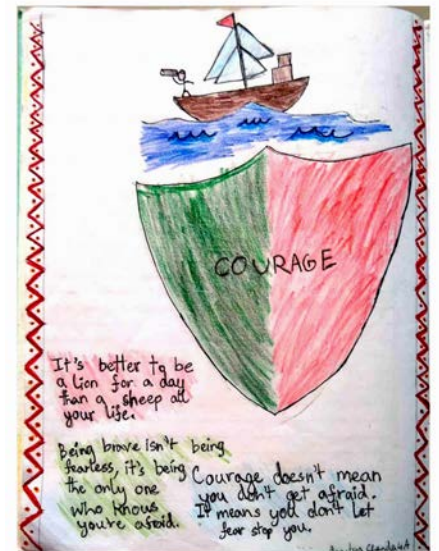 COURAGE
It's better to be
a lion for a day
than a sheep all
your life.
Being brave isn't being
fearless, it's being
the only one
who knows
you're afraid.
Courage doesn't mean
you don't get afraid.
It means you don't let
fear stop you.